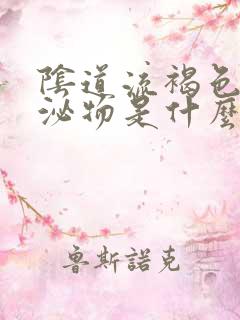 陰道流褐色
泌物是什麼
魯斯諾克